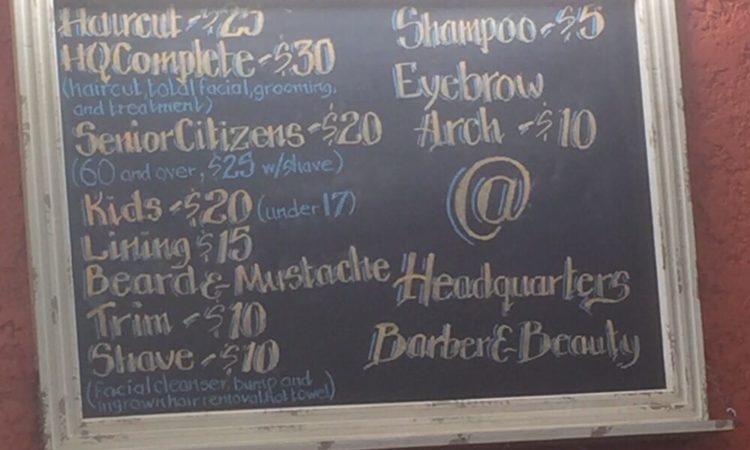 Haircut - $25
HQ Complete - $30
(haircut, total facial, grooming,
and treatment)
Senior Citizens - $20
(60 and over, $25 w/shave)
Kids - $20 (under 17)
Lining $15
Beard & Mustache
Trim - $10
Shave - $10
(Facial cleanser, bump and
ingrown hair removal, hot towel)
Shampoo - $5
Eyebrow
Arch - $10
@
Headquarters
Barber & Beauty